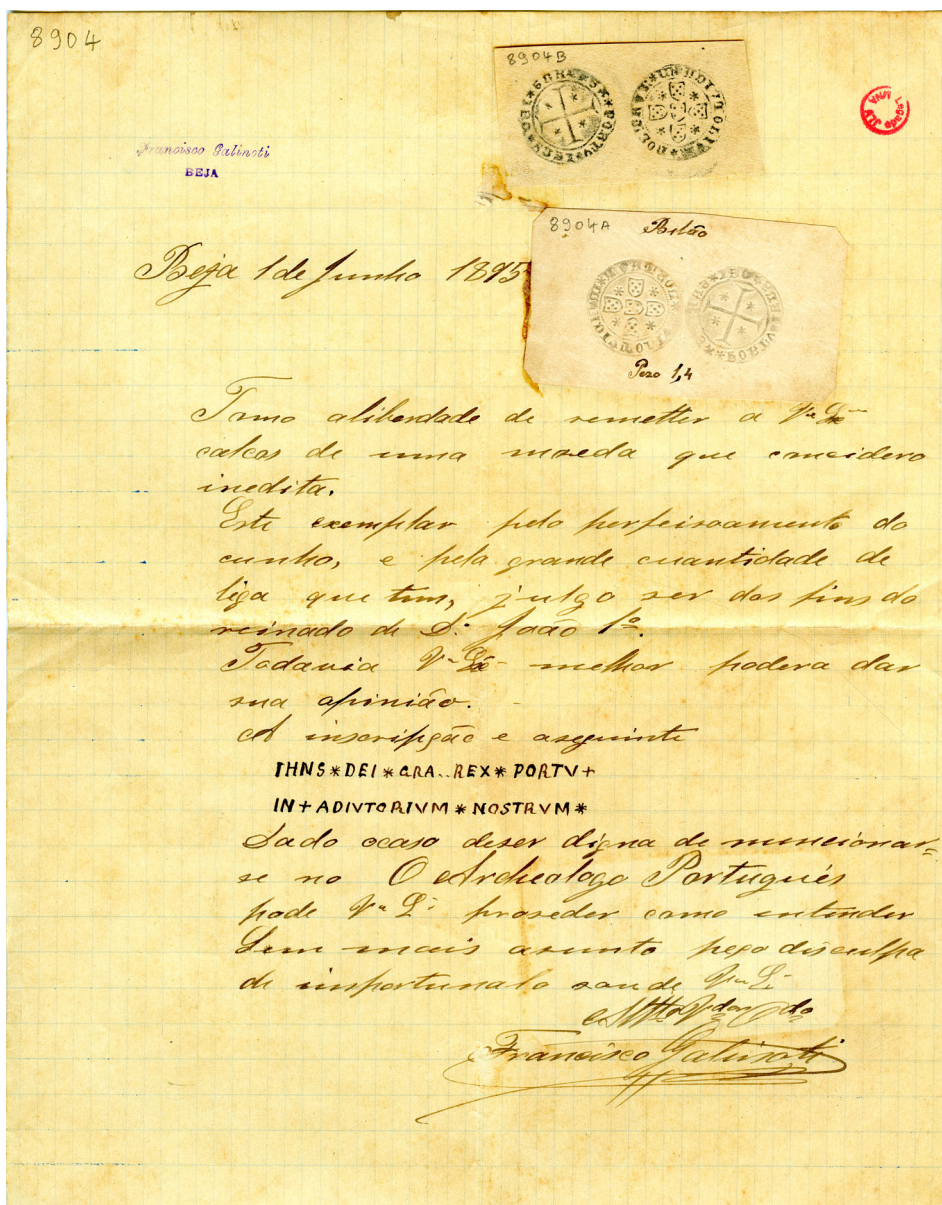 8904
8904B
Legado JLV
MNA
Francisco Galinoti
BEJA
8904A Bilão
Beja 1 de Junho 1895
Pezo 1,4
Tomo aliberdade de remetter a Vª
calcos de uma moeda que concidero
inedita.
Este exemplar pelo perfeisoamento do
cunho, e pela grande cuantidade de
liga que tem, julgo ser dos fins do
reinado de D. João 1º.
Todavia Vª melhor podera dar
sua opinião.
A inscripção e aseguinte
IHNS*DEI*GRA..REX*PORTV+
IN+ADIVTORIVM*NOSTRVM*
Dado ocaso deser digna de muncionar=
se no O Archeologo Português
pode Vª proseder como entender
Sem mais asunto peço disculpa
de importunalo sou de Vª
Francisco Galinoti